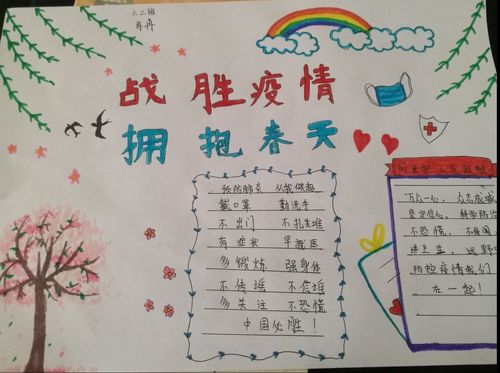 八二班
战胜疫情
拥抱春天
预防肺炎 从我做起
戴口罩 勤洗手
不出门 不扎堆
有症状 早就医
多锻炼 强身体
不传谣 不信谣
多关注 不恐慌
中国必胜！
万众一心，众志成城
坚定信心，科学防
不恐慌，不
讲卫生，远野
防控疫情我们
在一起！